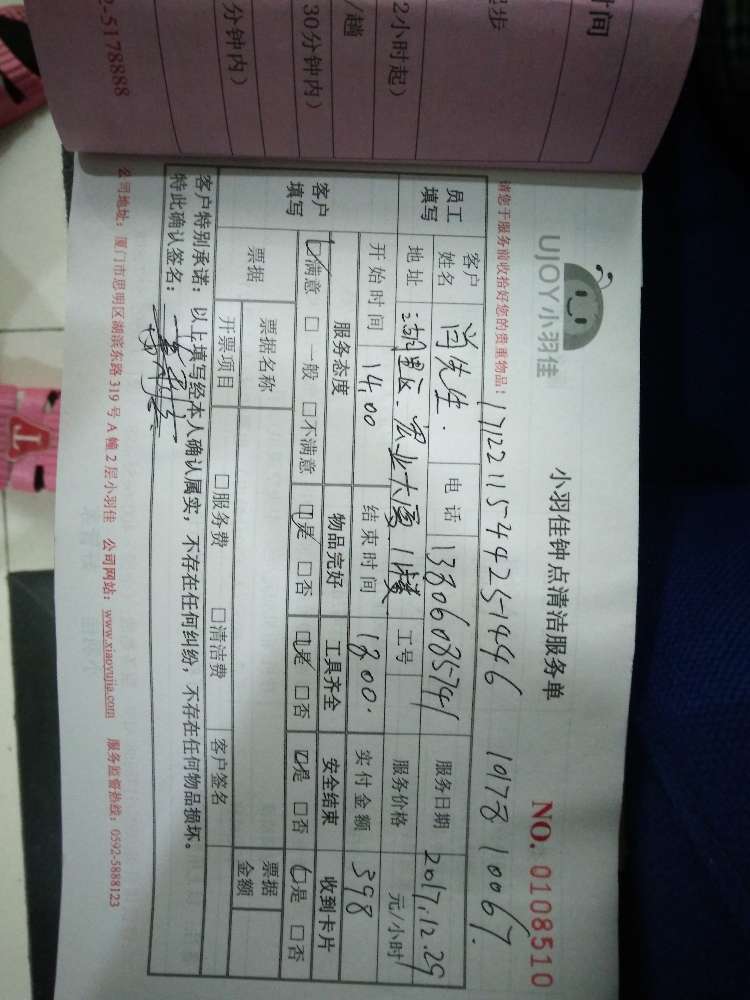 时间
起步
2小时起）
/趟
30分钟内）
分钟内）
2-5178888
UJOY小羽佳
小羽佳钟点清洁服务单
NO. 0108510
请您于服务前收拾好您的贵重物品！
17122115-44251446 10178 10067.
员工填写
客户姓名 肖先生. 电话 13806085741 服务日期 2017.12.29
地址 湖里区.宏业大厦 1楼 工号 服务价格 元/小时
开始时间 14.00 结束时间 18.00. 实付金额 398
客户填写
服务态度 物品完好 工具齐全 安全结束 收到卡片
☑满意 □一般 □不满意 ☑是 □否 ☑是 □否 ☑是 □否 ☑是 □否
票据 票据名称 □服务费 □清洁费 客户签名 票据金额
开票项目
客户特别承诺：以上填写经本人确认属实，不存在任何纠纷，不存在任何物品损坏。
特此确认签名：
公司地址：厦门市思明区湖滨东路319号A幢2层小羽佳 公司网站：www.xiaoyujia.com 服务监督热线：0592-5888123